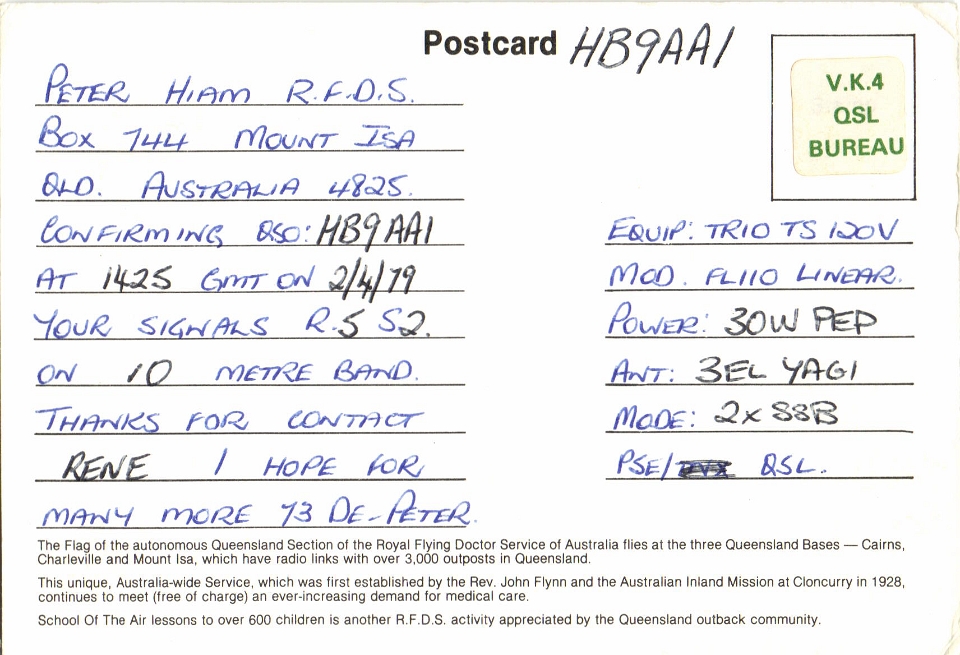 Postcard HB9AA1
V.K.4
QSL
BUREAU
PETER HIAM R.F.D.S.
BOX 744 MOUNT ISA
QLD. AUSTRALIA 4825.
CONFIRMING QSO: HB9AA1
AT 1425 GMT ON 2/4/79
YOUR SIGNALS R.5 S2.
ON 10 METRE BAND.
THANKS FOR CONTACT
RENE I HOPE FOR
MANY MORE 73 DE-PETER.
EQUIP: TRIO TS 120V
MOD. FL110 LINEAR.
POWER: 30W PEP
ANT: 3EL YAGI
MODE: 2x SSB
PSE/ QSL.
The Flag of the autonomous Queensland Section of the Royal Flying Doctor Service of Australia flies at the three Queensland Bases — Cairns,
Charleville and Mount Isa, which have radio links with over 3,000 outposts in Queensland.
This unique, Australia-wide Service, which was first established by the Rev. John Flynn and the Australian Inland Mission at Cloncurry in 1928,
continues to meet (free of charge) an ever-increasing demand for medical care.
School Of The Air lessons to over 600 children is another R.F.D.S. activity appreciated by the Queensland outback community.